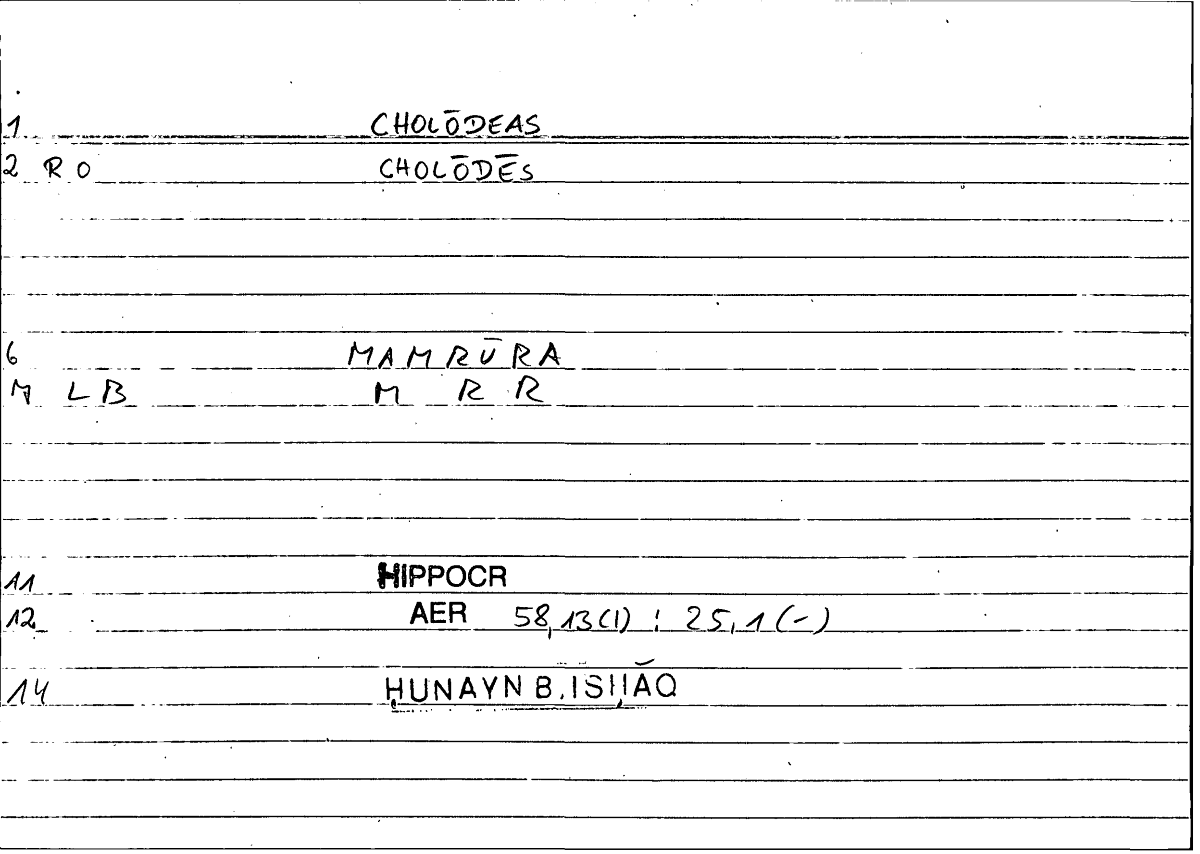 1 CHOLŌDEAS
2 RO CHOLŌDĒS
6 MAMRŪRA
LB M R R
11 HIPPOCR
12 AER 58,13(1) : 25,1(-)
14 ḤUNAYN B. ISḤĀQ